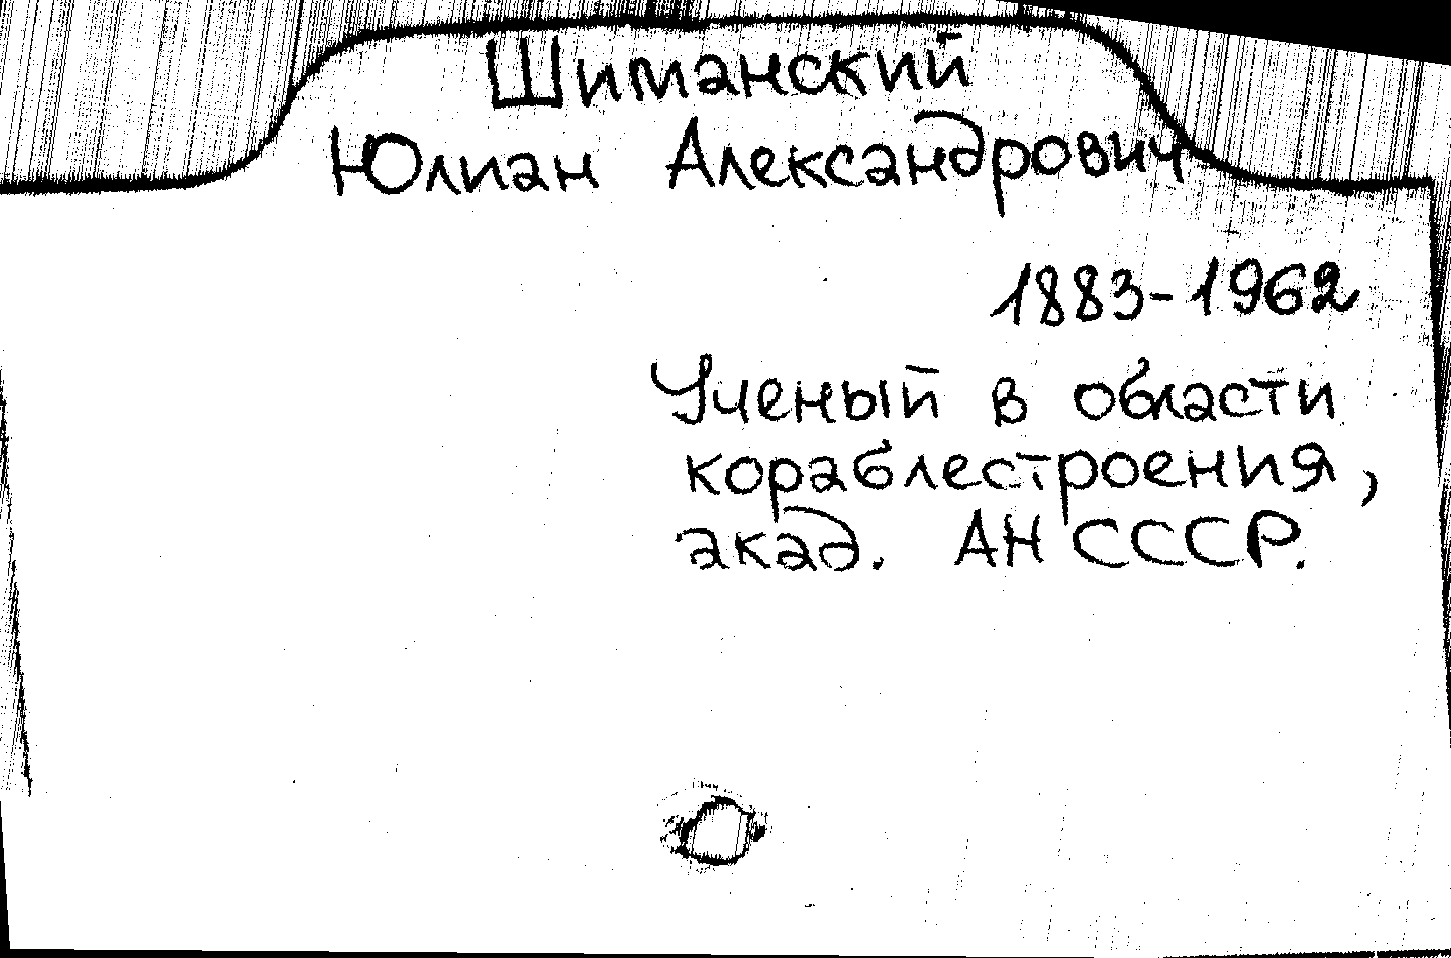 Шиманский
Юлиан Александрович
1883-1962
Ученый в области
кораблестроения,
акад. АН СССР.